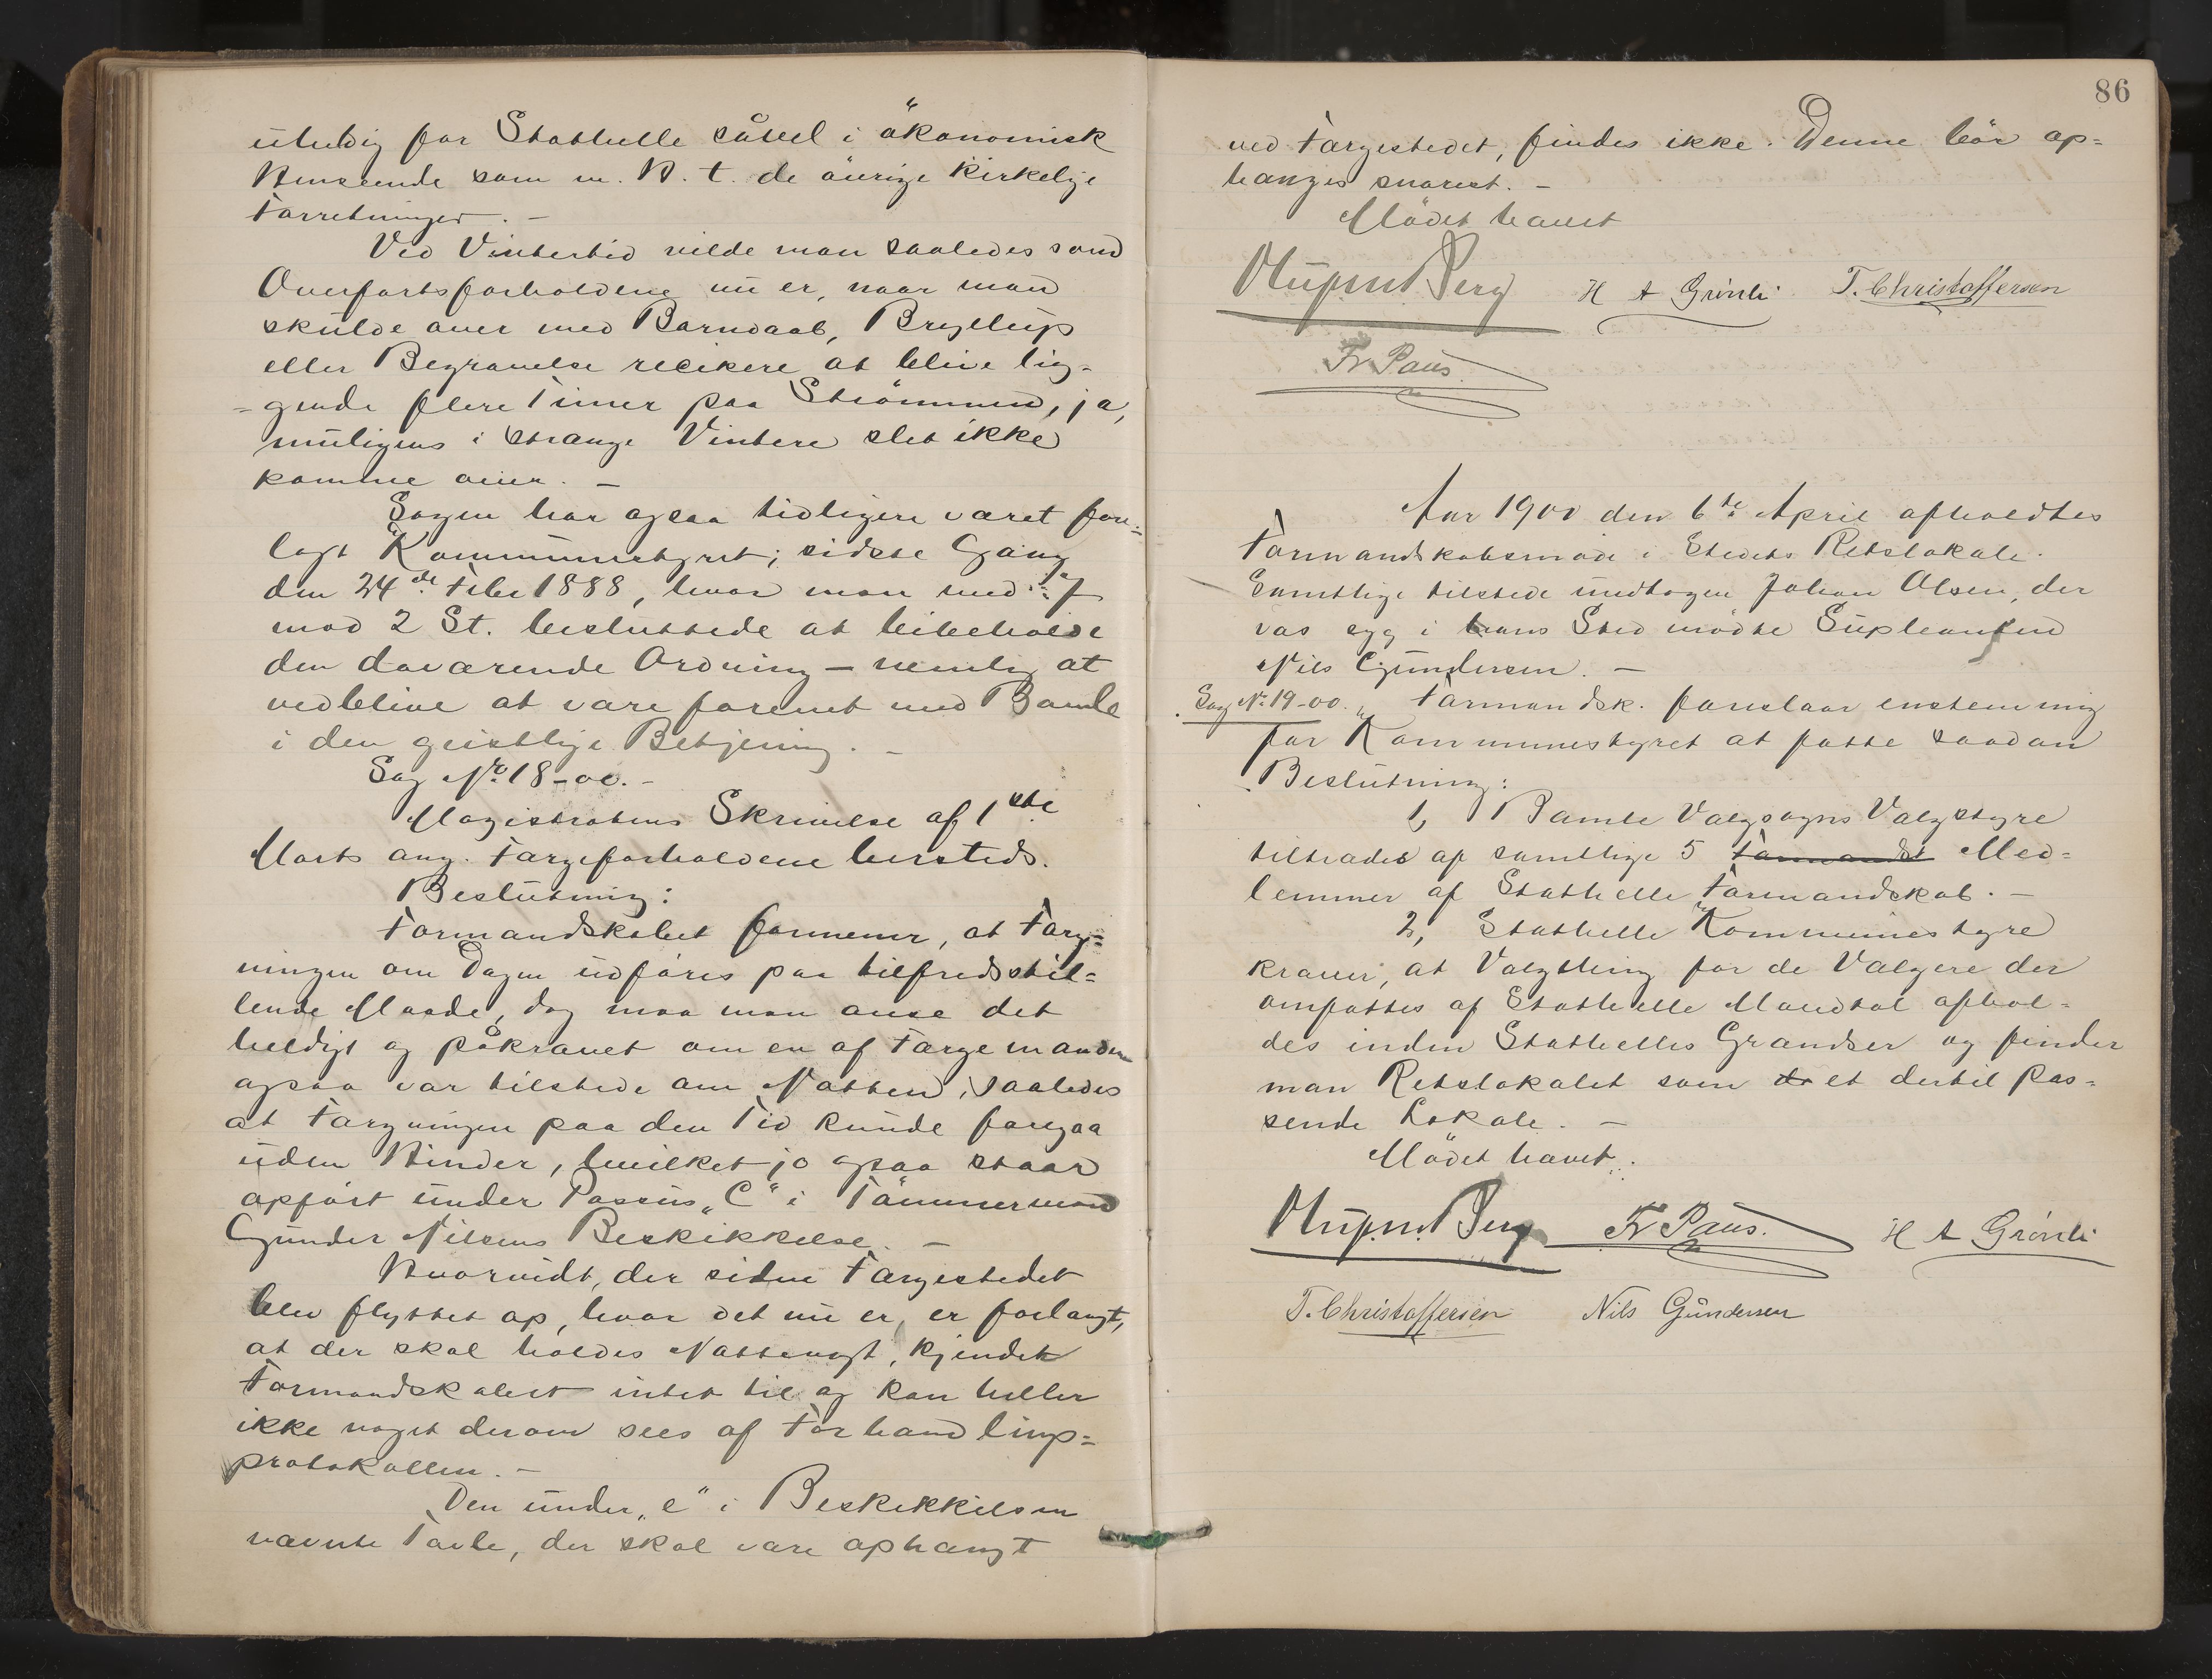 uheldig for Stathelle såvel i økonomisk
Henseende som m. H. t. de øvrige Kirkelige
Forretninger. —
Ved Vintertid vilde man saaledes som
Overfartsforholdene nu er, naar man
skulde over med Barndaab, Bryllup
eller Begravelse recikere at blive lig-
-gende flere Timer paa Strømmen, ja,
muligens i strænge Vintere slet ikke
komme over. —
Sagen har ogsaa tidligere været fore-
lagt Kommunestyret; sidste Gang
den 24de Febr 1888, hvor man med 7
mod 2 St. besluttede at bibeholde
den daværende Ordning — nemlig at
vedblive at være forenet med Bamle
i den geistlige Betjening. —
Sag No 18-00. -
Magistratens Skrivelse af 1ste
Marts ang. Færgeforholdene hersteds.
Beslutning:
Formandskabet formener, at Færg-
ningen om Dagen udføres paa tilfredsstil-
lende Maade, dog maa man anse det
heldigt og påkrævet om en af Færgemændene
ogsaa var tilstede om Natten, saaledes
at Færgningen paa den Tid kunde foregaa
uden Hinder, hvilket jo ogsaa staar
opført under Passus „C" i Tømmermand
Gunder Nilsens Beskikkelse. —
Hvorvidt, der siden Færgestedet
blev flyttet op, hvor det nu er, er forlangt,
at der skal holdes Nattevagt, kjender
Formandskabet intet til og kan heller
ikke noget derom sees af Forhandlings-
protokollen. —
Den under „e" i Beskikkelsen
nævnte Tavle, der skal være ophængt
86
ved Færgestedet, findes ikke. Denne bør op-
hænges snarest. —
Mødet hævet
Berg H A Grönli T. Christoffersen
Fr Paus
Aar 1900 den 6te April afholdtes
Formandskabsmøde i Stedets Retslokale.
Samtlige tilstede undtagen Johan Olsen, der
var syg i hans Sted mødte Supleanten
Nils Gundersen. —
Sag No 19-00. „ Formandsk. foreslaar enstemmig
for Kommunestyret at fatte saadan
Beslutning:
1, Bamle Valgsogns Valgstyre
tiltrædes af samtlige 5 Formandsk Med-
lemmer af Stathelle Formandskab. —
2, Stathelle Kommunestyre
kræver, at Valgthing for de Vælgere der
omfattes af Stathelle Mandtal afhol-
des inden Stathelles Grændser og finder
man Retslokalet som de et dertil pas-
sende Lokale. —
Mødet hævet.
Berg Fr Paus. H A Grönli
T. Christoffersen Nils Gundersen